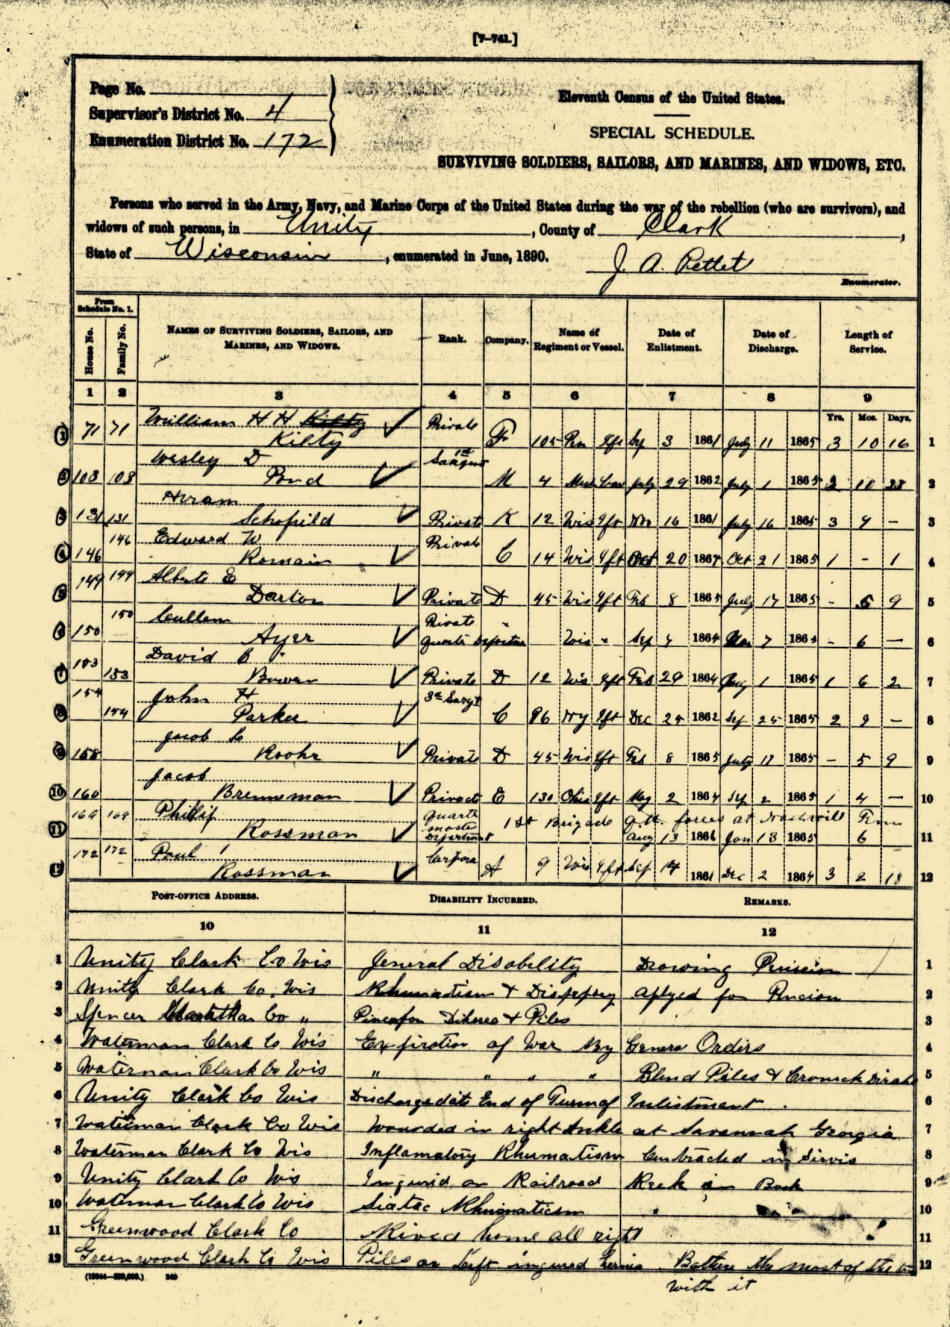 [7-741.]
Page No.
Supervisor's District No. 4
Enumeration District No. 172
Eleventh Census of the United States.
SPECIAL SCHEDULE.
SURVIVING SOLDIERS, SAILORS, AND MARINES, AND WIDOWS, ETC.
Persons who served in the Army, Navy, and Marine Corps of the United States during the war of the rebellion (who are survivors), and
widows of such persons, in Unity, County of Clark,
State of Wisconsin, enumerated in June, 1890. J. A. Pettet
Enumerator.
From Schedule No. 1.
House No. Family No. NAMES OF SURVIVING SOLDIERS, SAILORS, AND MARINES, AND WIDOWS. Rank. Company. Name of Regiment or Vessel. Date of Enlistment. Date of Discharge. Length of Service.
1 2 3 4 5 6 7 8 9
Yrs. Mos. Days.
1 71 71 William H H Kilty Private F 105 Pen Sep 3 1861 July 11 1865 3 10 16 1
2 103 103 Wesley D Pond 1st M 4 July 29 1862 July 1 1865 2 10 28 2
3 131 131 Hiram Schofield Private K 12 Wis Nov 16 1861 July 16 1865 3 9 - 3
4 146 146 Edward W Romain Private C 14 Wis Oct 20 Oct 21 1865 1 - 1 4
5 149 149 Albert E Darton Private D 45 Wis Feb 8 1865 July 17 1865 - 5 9 5
6 150 150 Cullem Ayer Private Wis Sep 7 1864 7 - 6 - 6
7 153 153 David B Bowen Private D 12 Wis Feb 29 1864 Aug 1 1865 1 6 2 7
8 154 154 John H Parker 3rd Sargt C 96 NY Dec 25 1862 Sep 25 1865 2 9 - 8
9 158 Jacob Roohr Private D 45 Wis Feb 8 1865 July 17 1865 - 5 9 9
10 160 Jacob Brennsman Private E 130 Ohio May 2 1864 Sep 2 1865 1 4 - 10
11 169 169 Phillip Rossman Quarte master Department 1st Brigade forces at Nashvill Aug 13 1864 Jan 13 1865 6 11
12 172 172 Paul Rossman A 9 Wis Sep 14 1861 Dec 2 1864 3 2 18 12
POST-OFFICE ADDRESS. DISABILITY INCURRED. REMARKS.
10 11 12
1 Unity Clark Co Wis Jeneral Disability Drowing 1
2 Unity Clark Co. Wis Rhumatism & aplyed for Pencion 2
3 Spencer Co " & Piles 3
4 Waterman Clark Co Wis Expiration of War By Genera Orders 4
5 Waterman Clark Co Wis " " " " Blend Piles & Cronick 5
6 Unity Clark Co Wis Discharge date End of Inlistment. 6
7 Waterman Clark Co Wis Wounded in right Ankle at Savannah Georgia 7
8 Waterman Clark Co Wis Inflamatory Rhumatism Contracted in Sirvis 8
9 Unity Clark Co Wis Ingurid on Railroad in Back 9
10 Waterman Clark Co Wis Siatac Rhumaticism 10
11 Greenwood Clark Co home all right 11
12 Greenwood Clark Co Wis Piles on Left ingured hernia Bothere the most of the 12
with it